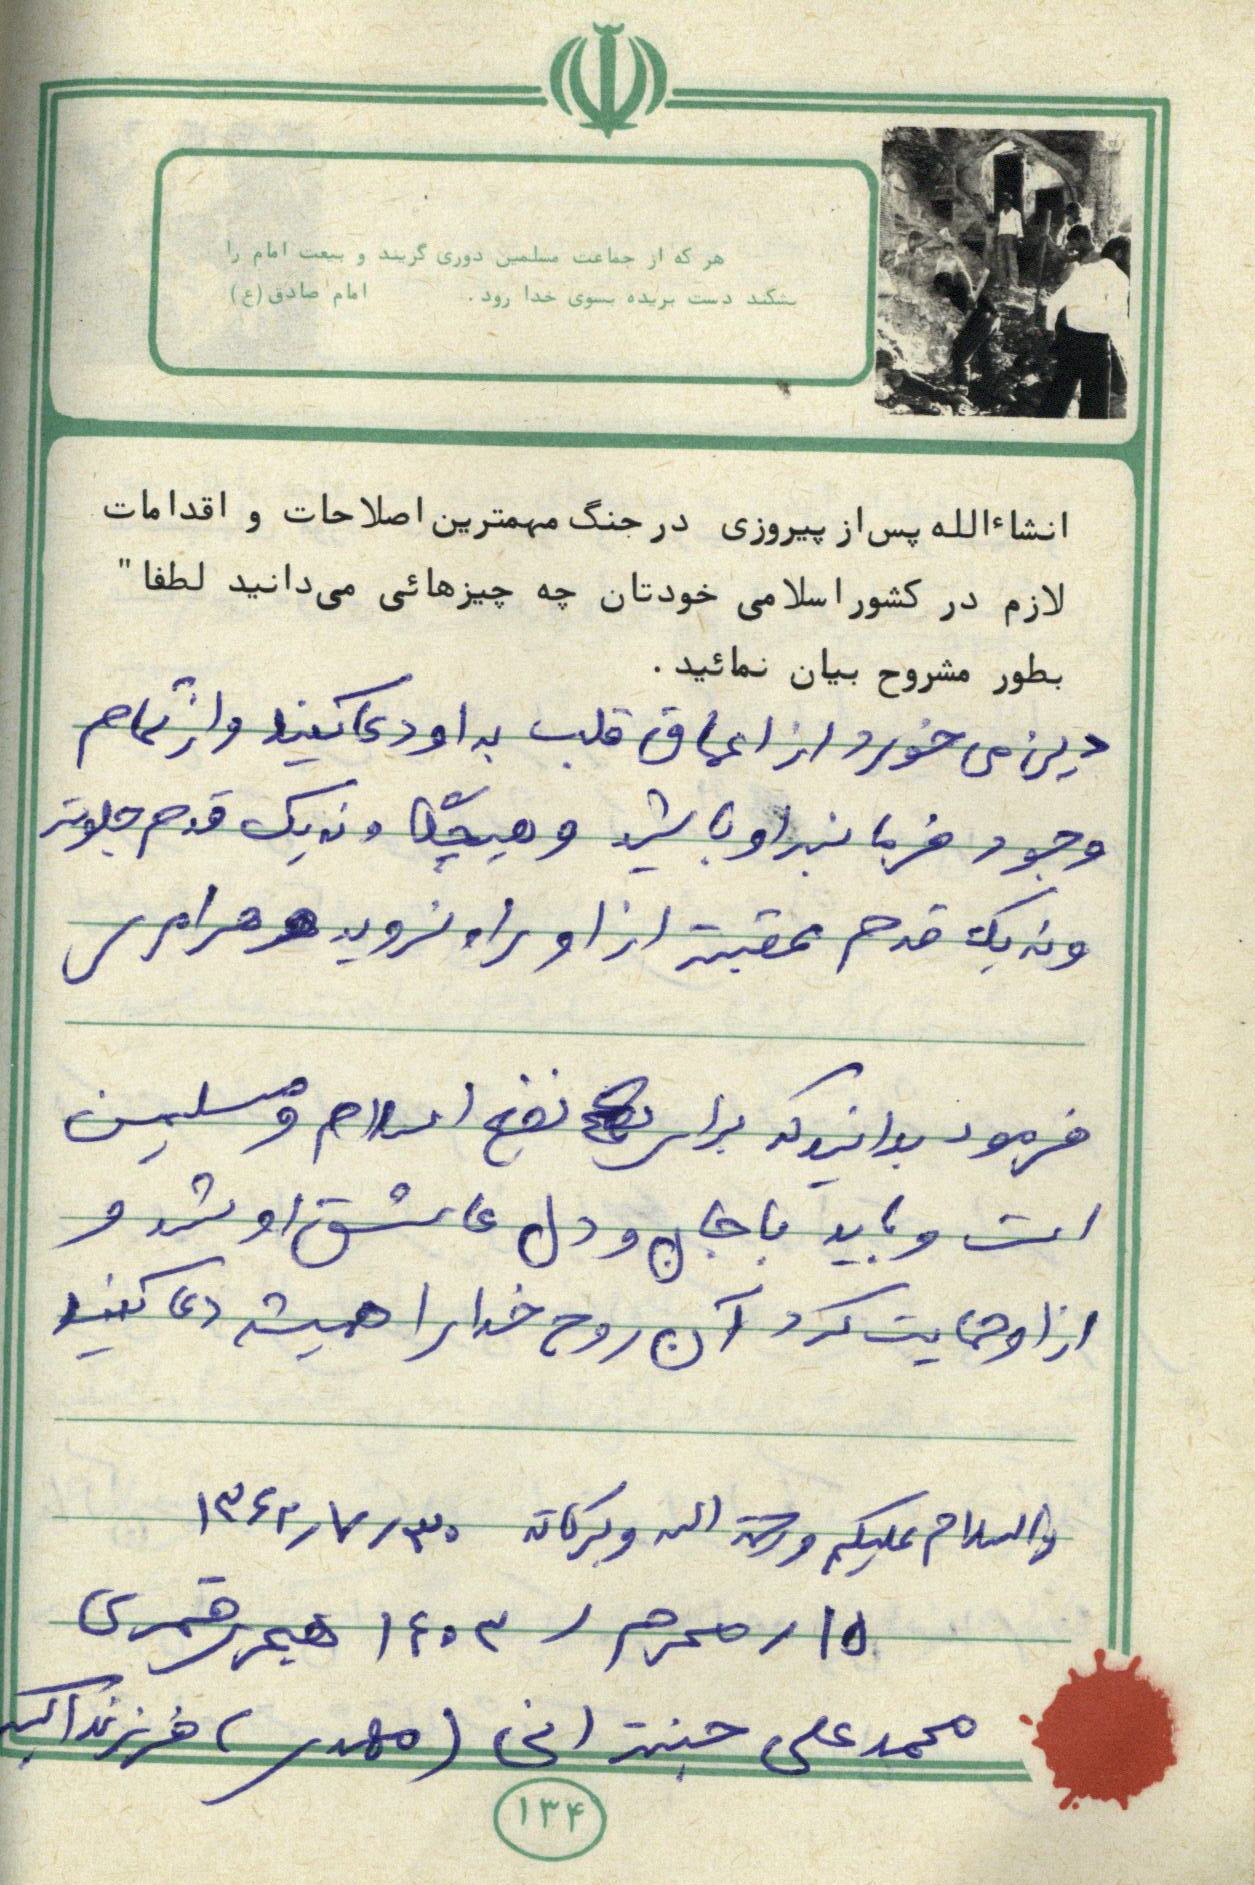 هر که از جماعت مسلمین دوری گزیند و بیعت امام را
بشکند دست بریده بسوی خدا رود . امام صادق (ع)
انشاءالله پس از پیروزی در جنگ مهمترین اصلاحات و اقدامات
لازم در کشور اسلامی خودتان چه چیزهائی می‌دانید لطفا"
بطور مشروح بیان نمائید .
دین می خورد از اعماق قلب به او دعا کنید و از تمام
وجود فرمانبر او باشید و هیچگاه نه یک قدم جلوتر
و نه یک قدم عقبتر از او راه نروید و هر امری
فرمود بدانید که برای نفع اسلام و مسلمین
است و باید با جان و دل عاشق او شد و
از او حمایت کرد آن روح خدا را همیشه دعا کنید
والسلام علیکم و رحمة الله و برکاته ۳۰ر۷ر۱۳۶۲
۱۵ر محرم ر ۱۴۰۳ هجری قمری
محمد علی جنتر انی (مهدی) فرزند اکبر
۱۳۴